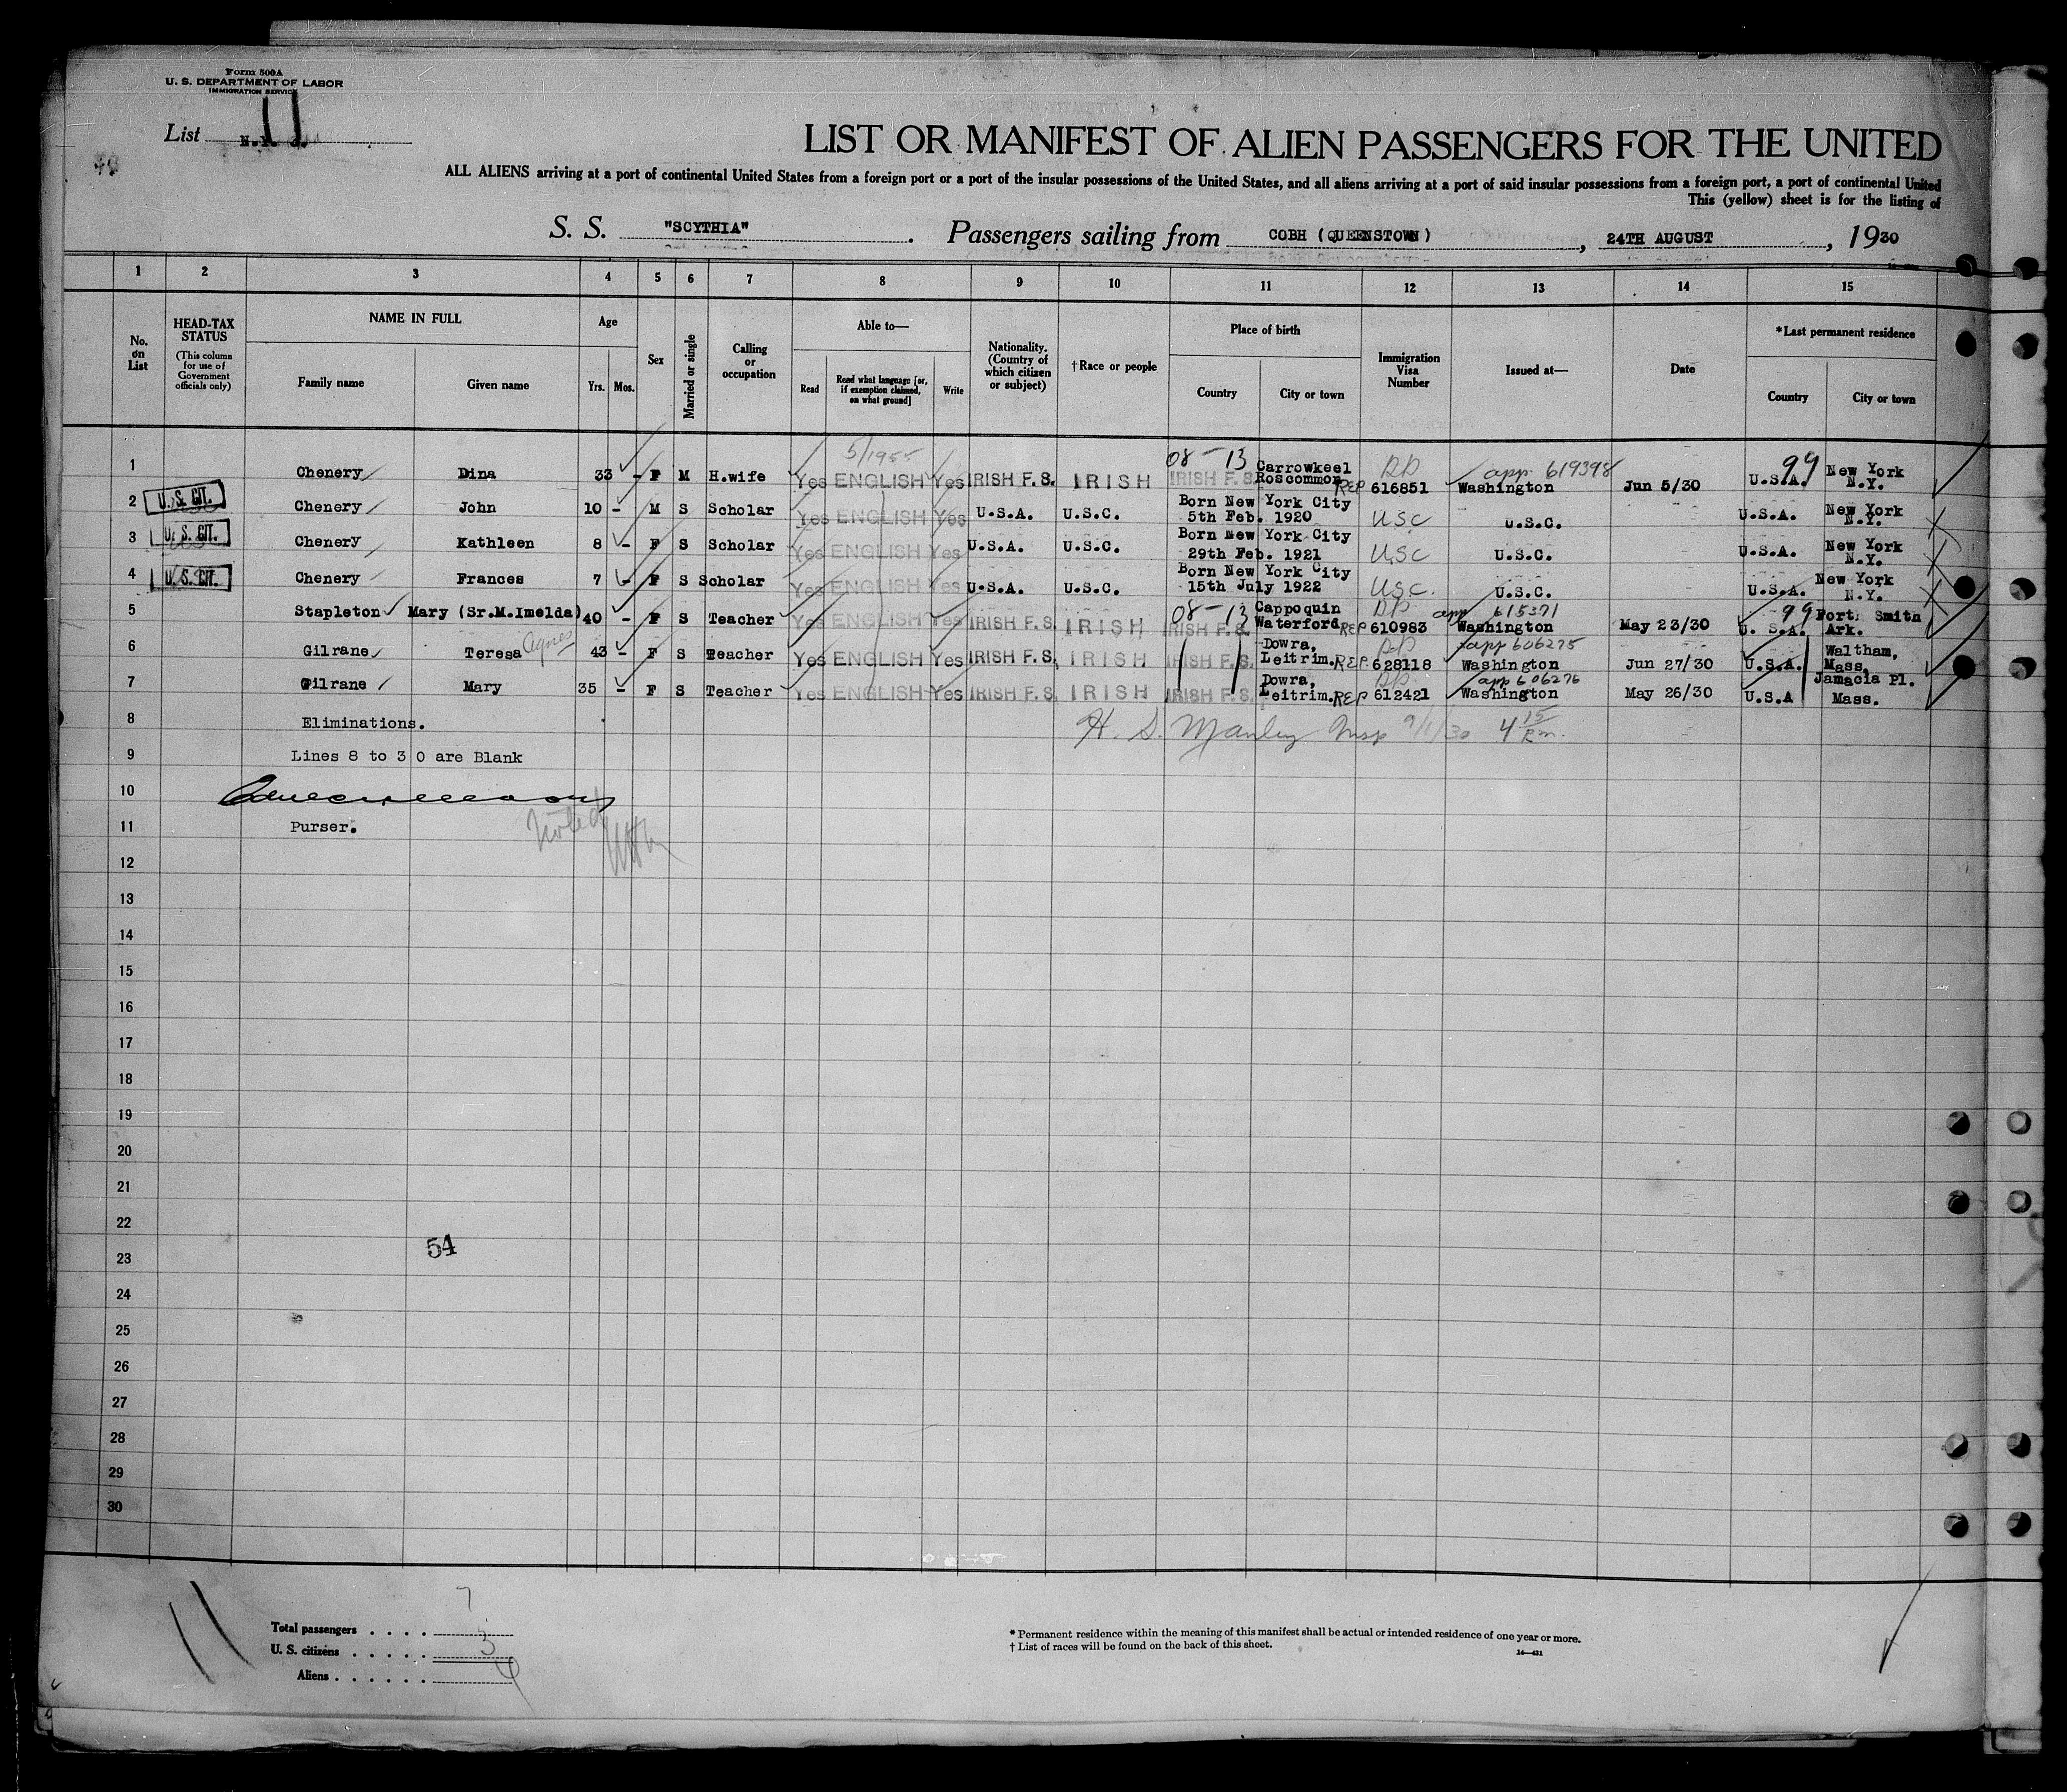 Form 500A
U. S. DEPARTMENT OF LABOR
IMMIGRATION SERVICE
List 11
LIST OR MANIFEST OF ALIEN PASSENGERS FOR THE UNITED
ALL ALIENS arriving at a port of continental United States from a foreign port or a port of the insular possessions of the United States, and all aliens arriving at a port of said insular possessions from a foreign port, a port of continental United
This (yellow) sheet is for the listing of
S. S. "SCYTHIA" . Passengers sailing from COBH (QUEENSTOWN) , 24TH AUGUST , 1930
1 2 3 4 5 6 7 8 9 10 11 12 13 14 15
No. on List
HEAD-TAX STATUS (This column for use of Government officials only)
NAME IN FULL Family name Given name
Age Yrs. Mos.
Sex
Married or single
Calling or occupation
Able to— Read Read what language [or, if exemption claimed, on what ground] Write
Nationality. (Country of which citizen or subject)
†Race or people
Place of birth Country City or town
Immigration Visa Number
Issued at—
Date
*Last permanent residence Country City or town
5/1955
1 Chenery Dina 33 - F M H.wife Yes ENGLISH Yes IRISH F.S. IRISH 08-13 IRISH F.S. Carrowkeel Roscommon RP REP 616851 app 619398 Washington Jun 5/30 99 U.S.A. New York N.Y.
2 U.S. CIT. Chenery John 10 - M S Scholar Yes ENGLISH Yes U.S.A. U.S.C. Born New York City 5th Feb. 1920 USC U.S.C. U.S.A. New York N.Y.
3 U.S. CIT. Chenery Kathleen 8 - F S Scholar Yes ENGLISH Yes U.S.A. U.S.C. Born New York City 29th Feb. 1921 USC U.S.C. U.S.A. New York N.Y.
4 U.S. CIT. Chenery Frances 7 - F S Scholar Yes ENGLISH Yes U.S.A. U.S.C. Born New York City 15th July 1922 USC. U.S.C. U.S.A. New York N.Y.
5 Stapleton Mary (Sr.M.Imelda) 40 - F S Teacher Yes ENGLISH Yes IRISH F.S. IRISH 08-13 IRISH F.S. Cappoquin Waterford RP REP 610983 app 615371 Washington May 23/30 99 U.S.A. Fort Smith Ark.
6 Gilrane Teresa Agnes 43 - F S Teacher Yes ENGLISH Yes IRISH F.S. IRISH IRISH F.S. Dowra, Leitrim. RP REP. 628118 app 606275 Washington Jun 27/30 U.S.A. Waltham, Mass.
7 Gilrane Mary 35 - F S Teacher Yes ENGLISH Yes IRISH F.S. IRISH IRISH F.S. Dowra, Leitrim. RP REP 612421 app 606276 Washington May 26/30 U.S.A Jamacia Pl. Mass.
8 Eliminations. H. S. Manley Insp 9/1/30 4 15 P.m.
9 Lines 8 to 30 are Blank
10
11 Purser. Noted
12
13
14
15
16
17
18
19
20
21
22
23 54
24
25
26
27
28
29
30
11
Total passengers . . . . 7
U. S. citizens . . . . . 3
Aliens . . . . . . 4
* Permanent residence within the meaning of this manifest shall be actual or intended residence of one year or more.
† List of races will be found on the back of this sheet.
14—431